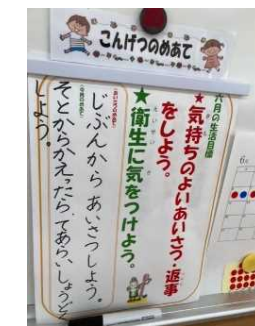 こんげつのめあて
六月の生活目標
★気持ちのよいあいさつ・返事
をしよう。
★衛生に気をつけよう。
じぶんから あいさつしよう。
そとからかえったら、てあらい、しょうどく
しよう。
6月